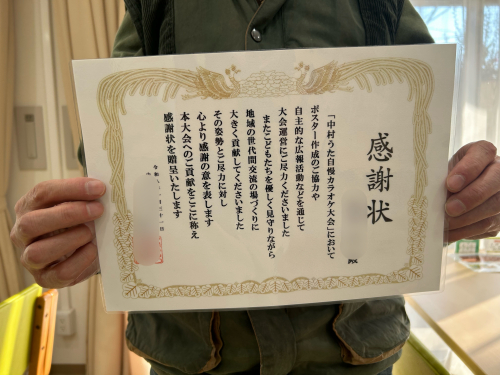 感謝状
殿
「中村うた自慢カラオケ大会」において
ポスター作成のご協力や
自主的な広報活動などを通じて
大会運営にご尽力くださいました
またこどもたちを優しく見守りながら
地域の世代間交流の場づくりに
大きく貢献してくださいました
その姿勢とご尽力に対し
心より感謝の意を表します
本大会へのご貢献をここに称え
感謝状を贈呈いたします